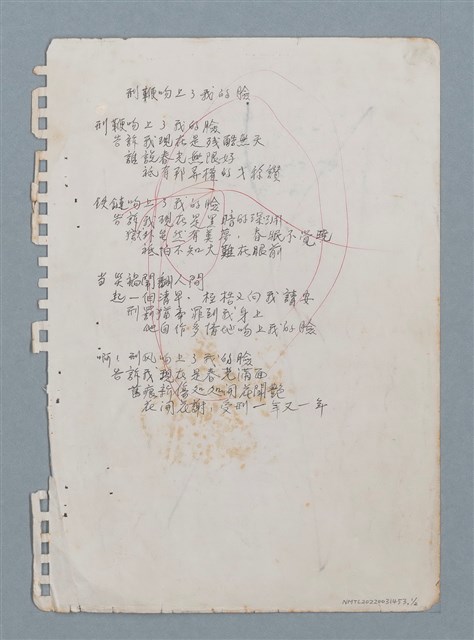 刑鞭吻上了我的臉
刑鞭吻上了我的臉
告訴我現在是殘酷無天
誰說春光無限好
祇有那弄權的才稱讚
鉄鏈吻上了我的臉
告訴我現在是黑暗的深淵
縱然有美夢,春眠不覺曉
祇怕不知大難在眼前
当災禍鬧翻人間
起一個清早,桎梏又向我請安
刑罰猶帶罪到我身上
他自作多情地吻上我的臉
啊!刑风吻上了我的臉
告訴我現在是春光滿面
舊痕新傷処処開花開艷
花開花謝,受刑一年又一年